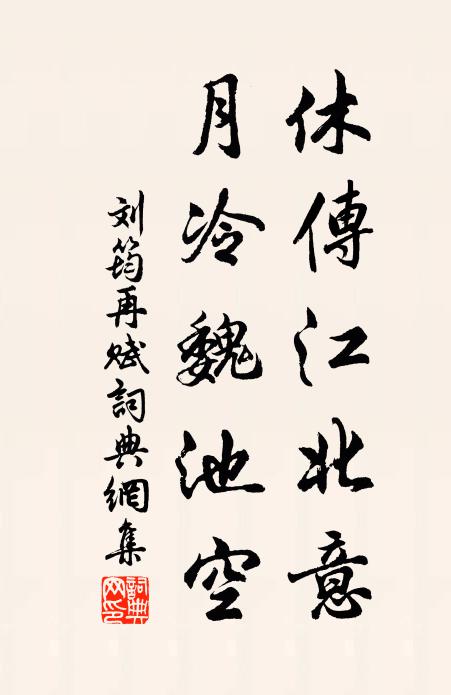 休傳江北意
月冷魏池空
刘筠再赋詞典網集
詞典网印